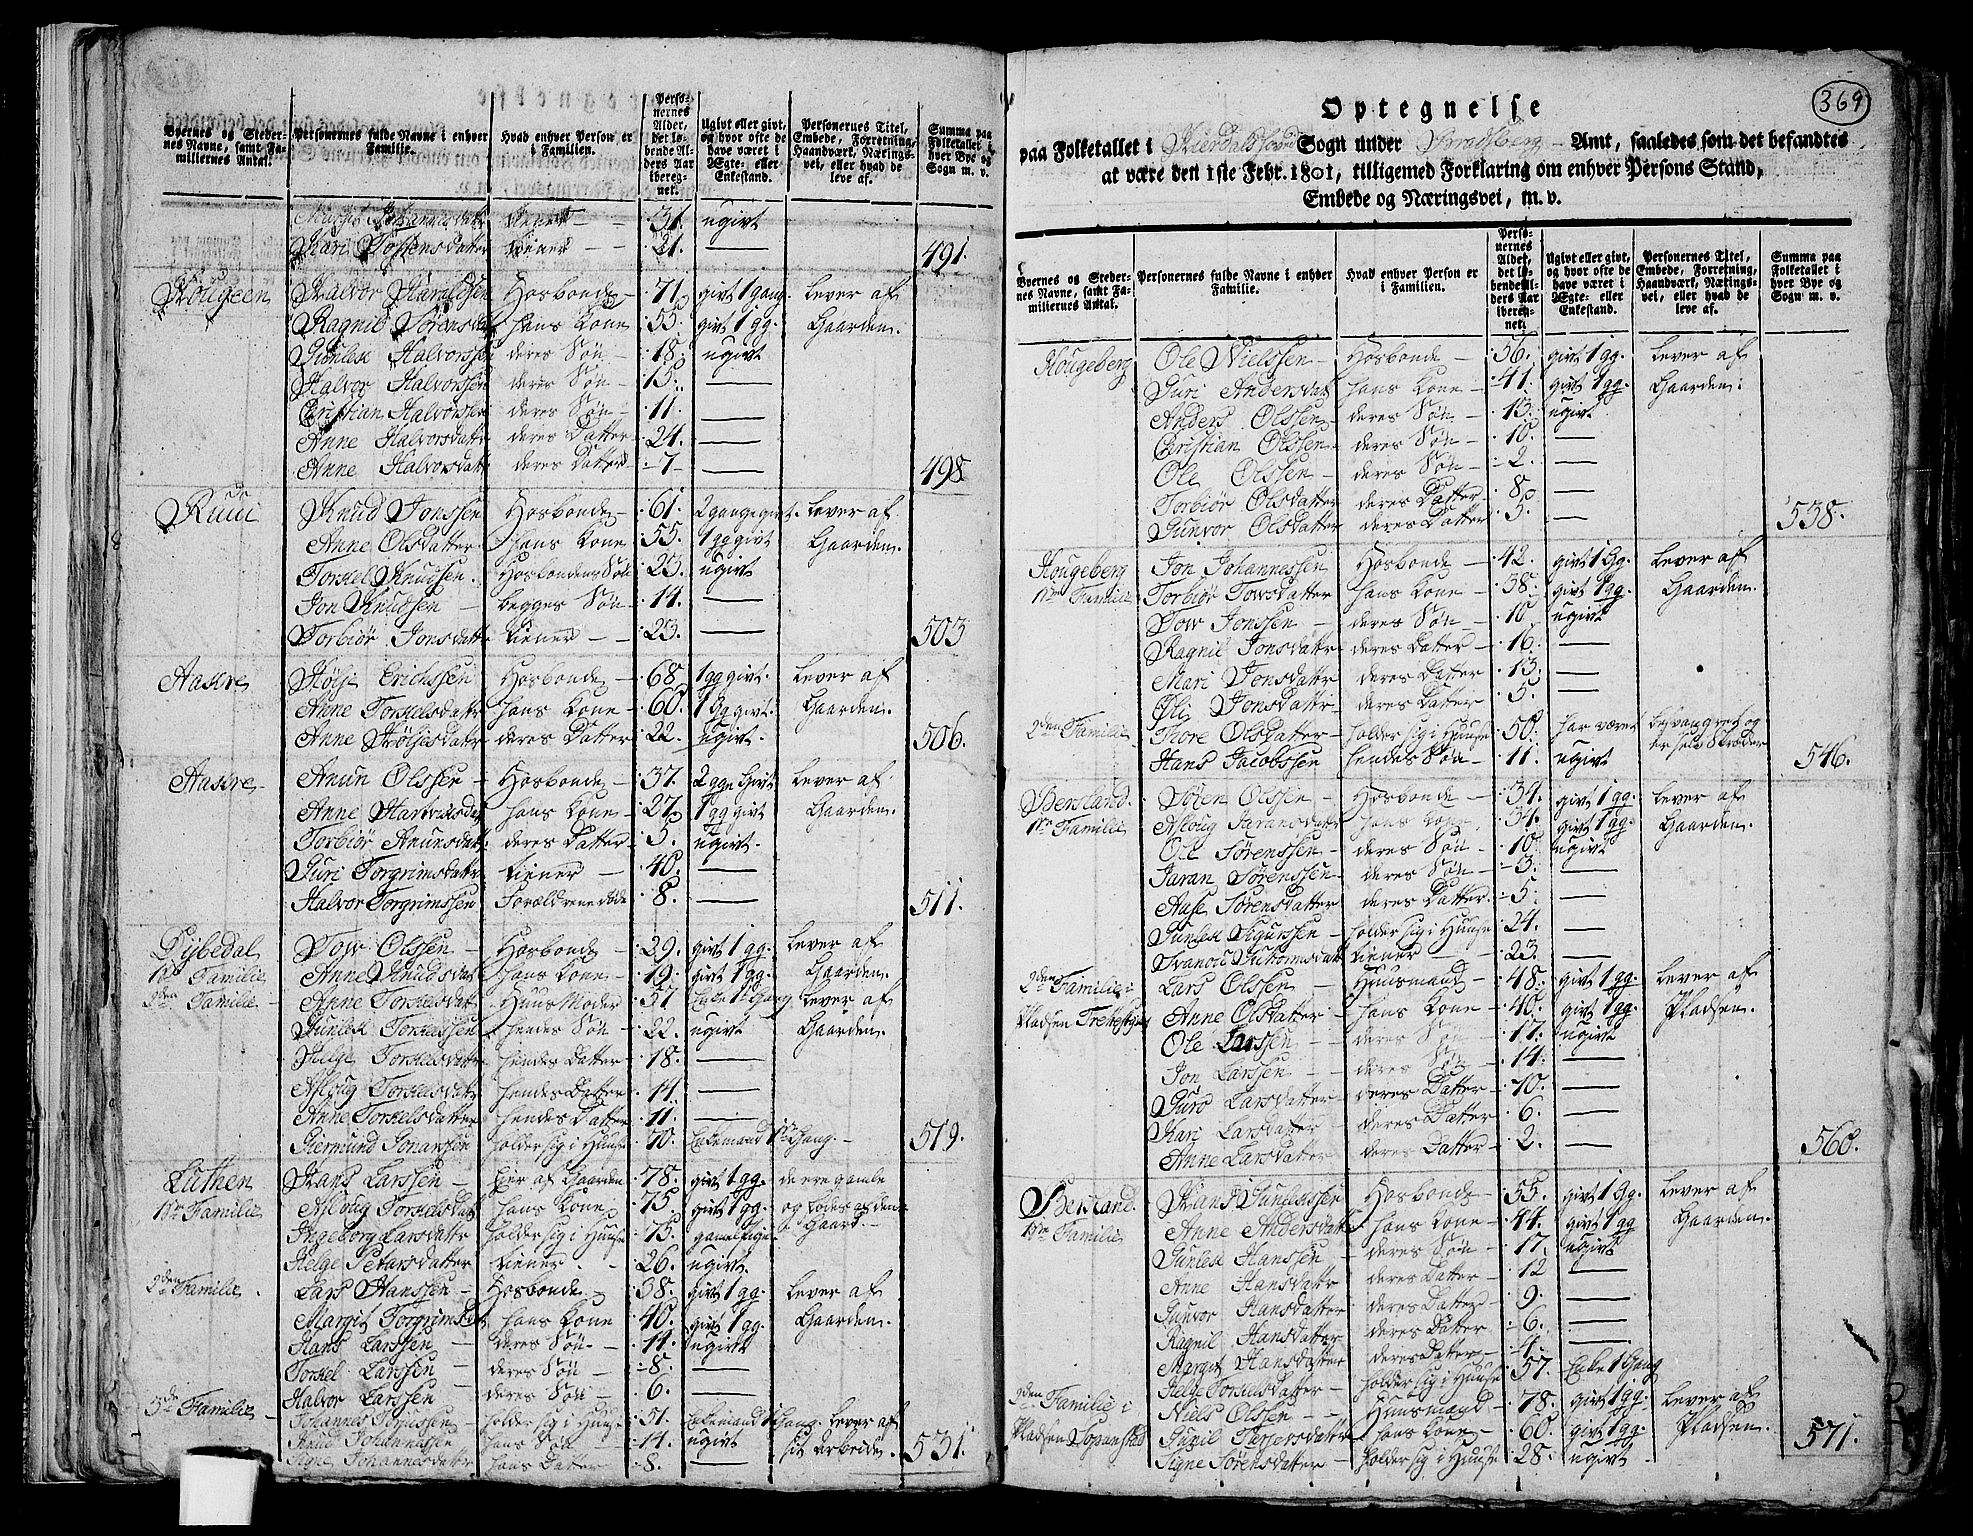 Byernes og Steder-
nes Navne, samt Fa-
miliernes Antal.
Personernes fulde Navne i enhver
Familie.
Hvad enhver Person er
i Familien.
Perso-
nernes
Alder,
det lø-
bende Al-
ders Aar
ibereg-
net.
Ugivt eller givt,
og hvor ofte de
have været i
Ægte- eller
Enkestand.
Personernes Titel,
Embede, Forretning,
Haandværk, Nærings-
vei, eller hvad de
leve af.
Summa paa
Folketallet i
hver Bye og
Sogn m. v.
Johannesdatter tiener 31. ugivt
Kari Tostensdatter tiener - 21. — 491.
Halvor Haraldsen Hosbonde - 71. givt 1 gang. Lever af
Ragnil Sørensda hans Kone 55. givt 1 gg. Gaarden.
Gunlek Halvorssen deres Søn - 18. ugivt
Halvor Halvorssen deres Søn - 15. —
Cristian Halvorssen deres Søn - 11. —
Anne Halvorsdattr deres Datter - 24. —
Anne Halvorsdattr deres Datter - 7. — 498
Ruui Knud Jonssen Hosbonde - 61. 2 gange givt. Lever af
Anne Olsdatter hans Kone 55. 1 gg givt Gaarden.
Torkel Knudsen. Hosbondens Søn 23. ugivt
Jon Knudsen - begges Søn - 14. —
Torbiør Jonsdattr tiener - - 23. — 503
Erichssen Hosbonde - 68 1 gg givt. Lever af
Anne Torkelsdattr hans Kone - 60. 1 gg givt. Gaarden.
Anne deres Datter - 22. ugivt. 506.
Anun Olssen - Hosbonde - 37. 2 gge Givt Lever af
Anne hans Kone - 27. 1 gg givt Gaarden.
Torbiør Anunsdatt deres Datter - 5. ugivt.
Guri Torgrimsdattr tiener - 40. —
Halvor Torgrimssen Forældrene døde 8. — 511.
Dybedal Tow Olssen - Hosbonde - 29. givt 1 gg. Lever af
1ste Familie Anne Knudsdatt hans Kone - 19. givt 1 gg. Gaarden.
Familie - Anne Torkelsdatt Huus Moder 57 Enke 1 Gang. Lever af
Gunlek Torkelssen hendes Søn - 22. ugivt Gaarden.
Helge Torkelsdattr hendes Datter - 18. —
Asloug Torkelsdatr hendes Datter - 14. —
Anne Torkelsdatter hendes Datter - 11. —
holder sig i Huuse 70. Enkemand 1ste Gang. - 519.
Luthen Hans Larssen - Eier af Gaarden 78. givt 1 gg. de ere gamle
1ste Familie Asloug Torkelsdat hans Kone 75. givt 1 gg. og
Ingeborg Larsdattr holder sig i Huuse 75. gamel Pige Gaard. -
Helge Petersdatter tiener - 26. ugivt
2den Familie Lars Hanssen - Hosbonde 38. givt 1 gg. Lever af
Margit Torgrimsd hans Kone 40. givt 1 gg. Gaarden.
Hans Larssen - deres Søn - 14. ugivt
Torkel Larssen - deres Søn - 8. —
Halvor Larssen deres Søn - 6. —
Familie - Johannes Knudssen - holder sig i Huuse 51. Enkemand 1 Gang. Lever af
Knud Johannessen hans Søn - 14. ugivt sit arbeide.
Signe Johannesdattr hans Datter - 8. — 531.
369
Optegnelse
paa Folketallet i Hierdals Hoved Sogn under Bradsberg - Amt, saaledes som det befandtes
at være den 1ste Febr. 1801, tilligemed Forklaring om enhver Persons Stand,
Embede og Næringsvei, m. v.
Byernes og Steder-
nes Navne, samt Fa-
miliernes Antal.
Personernes fulde Navne i enhver
Familie.
Hvad enhver Person er
i Familien.
Perso-
nernes
Alder,
det lø-
bende Al-
ders Aar
ibereg-
net.
Ugivt eller givt,
og hvor ofte de
have været i
Ægte- eller
Enkestand.
Personernes Titel,
Embede, Forretning,
Haandværk, Nærings-
vei, eller hvad de
leve af.
Summa paa
Folketallet i
hver Bye og
Sogn m. v.
Hougeberg Ole Nielssen - Hosbonde - 56. givt 1 gg. Lever af
Guri Andersdatt hans Kone - 41. givt 1 gg. Gaarden.
Anders Olssen - deres Søn - 13. ugivt
Cristian Olssen - deres Søn - 10. —
Ole Olssen - deres Søn - 2. —
Torbiør Olsdatter deres Datter - 8. —
Gunvor Olsdatter deres Datter 5. — 538.
Hougeberg Jon Johannessen Hosbonde - 42. givt 1 Gg. Lever af
1ste Familie Torbiør Towsdatter hans Kone - 38. givt 1 gg. Gaarden.
Tow Jonssen - deres Søn - 10 ugivt
Ragnil Jonsdattr deres Datter - 16. —
Mari Jonsdattr deres Datter - 13. —
Jonsdattr deres Datter 5. —
2den Familie Thore Olsdatter holder sig i Huuse 50. har været
Hans Jacobssen hendes Søn - 11. ugivt 546.
Søren Olssen - Hosbonde - 34. givt 1 gg. Lever af
1ste Familie Asloug hans Kone - 31. givt 1 gg. Gaarden.
Ole Sørenssen - deres Søn - 10. ugivt
Sørenssen - deres Søn - 3. —
Aase Sørensdatter deres Datter - 5. —
Gunlek holder sig i Huuse 24. —
tiener - 23. —
2den Familie Lars Olssen - Huusmand - 48. givt 1 gg. Lever af
Pladsen Anne Olsdatter - hans Kone - 40. givt 1 gg. Pladsen.
Ole Larssen - deres Søn - 17. ugivt
Jon Larssen - deres Søn - 14. —
Guro Larsdatter - deres Datter - 10. —
Kari Larsdatter - deres Datter 6. —
Anne Larsdatter deres Datter - 2. — 560.
Hans Gunlekssen Hosbonde - 55. givt 1 Gg. Lever af
1ste Familie Anne Andersdatt hans Kone - 44. givt 1 gg Gaarden.
Gunlek Hanssen - deres Søn - 17. ugivt
Anne Hansdattr deres Datter - 12 —
Gunvor Hansdatter deres Datter 9. —
Ragnil Hansdatter deres Datter - 6. —
Margit Hansdatter deres Datter - 4. —
Helge Torkelsdatter - holder sig i Huuse 57. Enke 1 Gang
2den Familie Niels Olssen - Huusmand - 78. givt 1 gg. Lever af
Pladsen hans Kone - 60. givt 1 gg. Pladsen
Signe Sørensdatter - holder sig i Huuse 28. ugivt 571.